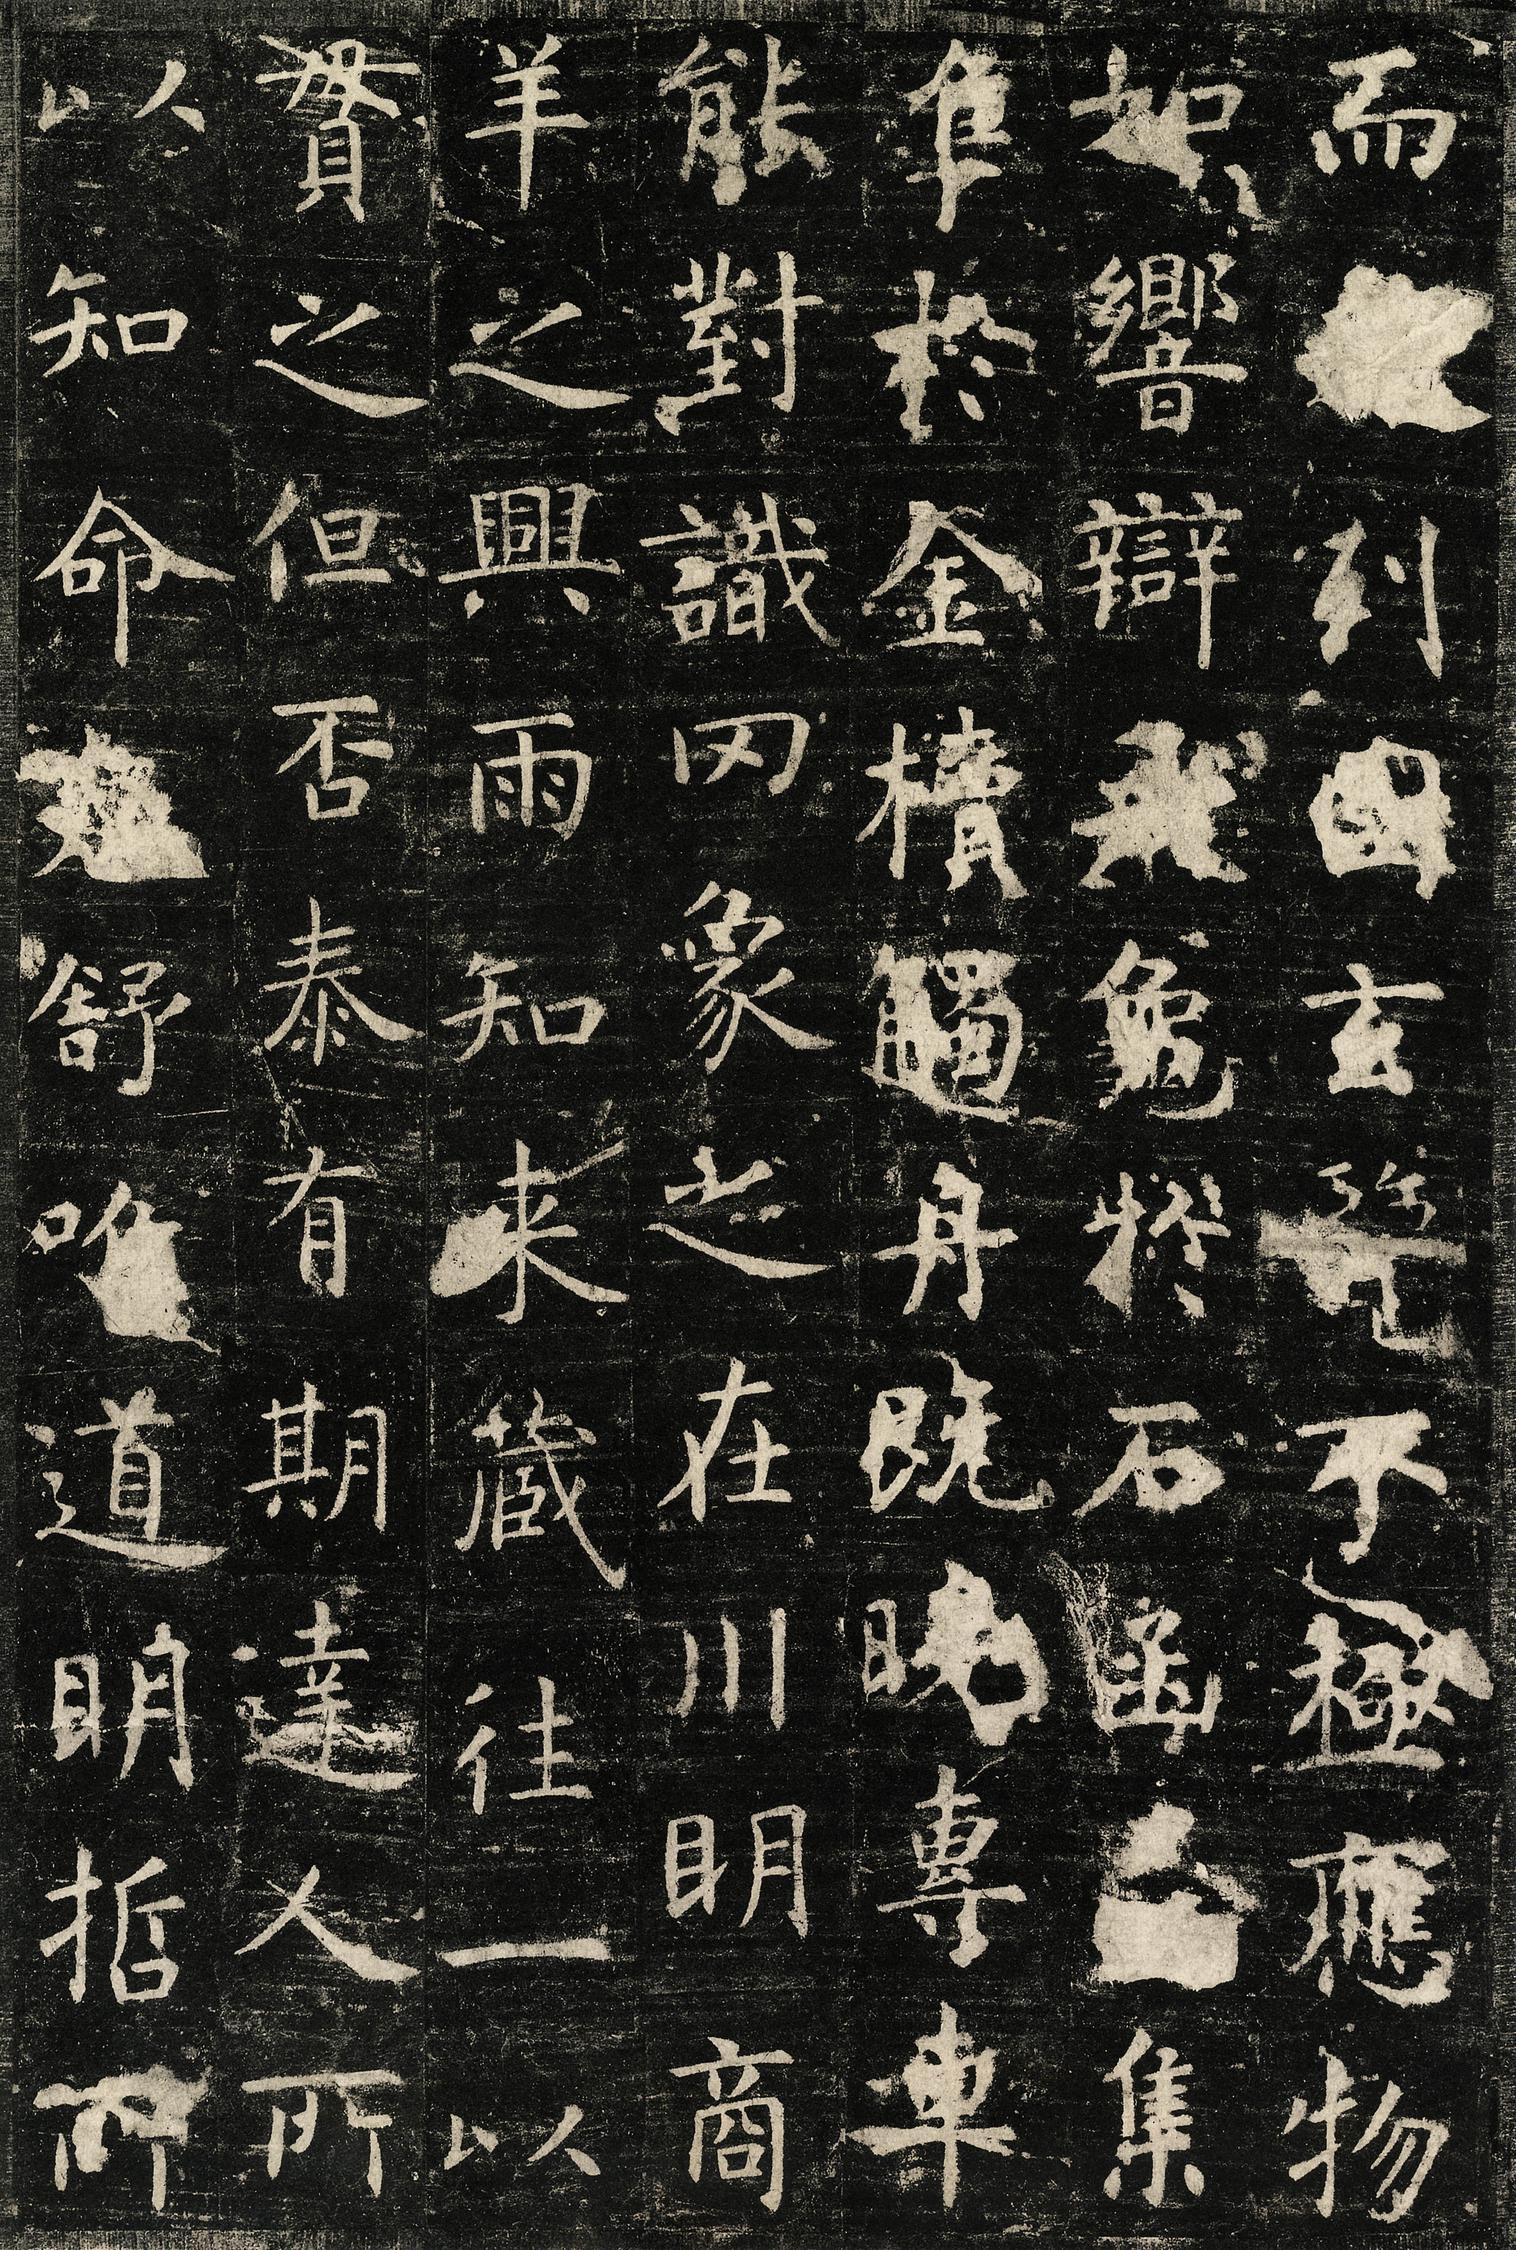 而刻玄不極應物
如響辯龜於石函集
隼於金櫝觸舟既曉專車
能對識罔象之在川明商
羊之興雨知來藏往一以
貫之但否泰有期達人所
以知命卷舒唯道明哲所